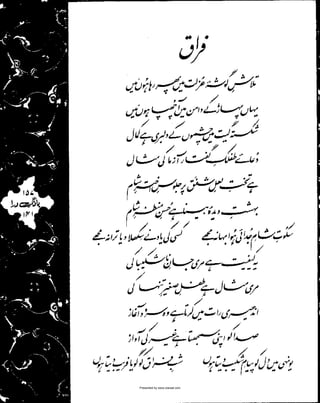 فراق
تلاشِ گوشۂ عزلت میں پھر رہا ہوں میں
یہاں پہاڑ کے دامن میں آ چھپا ہوں میں
شکستہ گیت میں چشموں کے دلبری ہے کمال
دعائے طفلکِ گفتار آزما کی مثال
ہے تختِ لعلِ شفق پر جلوسِ اخترِ شام
بہشتِ دیدۂ بینا ہے حسنِ منظرِ شام
سکوتِ شامِ جدائی ہوا بہانہ مجھے کسی کی یاد نے سکھلا دیا ترانہ مجھے
یہ کیفیت ہے مری جانِ ناشکیبا کی
مری مثال ہے طفلِ صغیرِ تنہا کی
اندھیری رات میں کرتا ہے وہ سرود آغاز
صدا کو اپنی سمجھتا ہے غیر کی آواز
یونہی میں دل کو پیامِ شکیب دیتا ہوں شبِ فراق کو گویا فریب دیتا ہوں
بانگِ درا
Presented by www.ziaraat.com